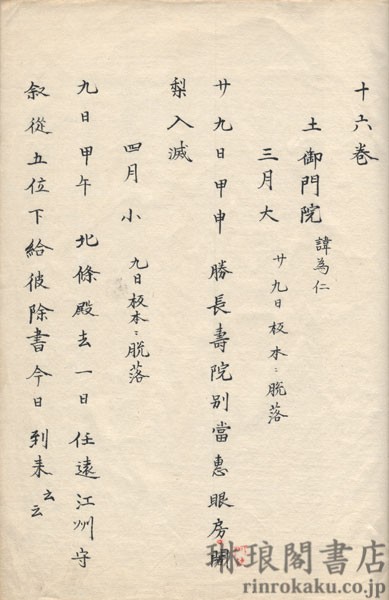 十六巻
土御門院 諱為仁
三月大 廿九日板本ニ脱落
廿九日甲申 勝長壽院別當惠眼房闍
梨入滅
四月小 九日板本ニ脱落
九日甲午 北條殿去一日 任遠江州守
叙從五位下給彼除書今日到来云云
琳琅閣書店
rinrokaku.co.jp